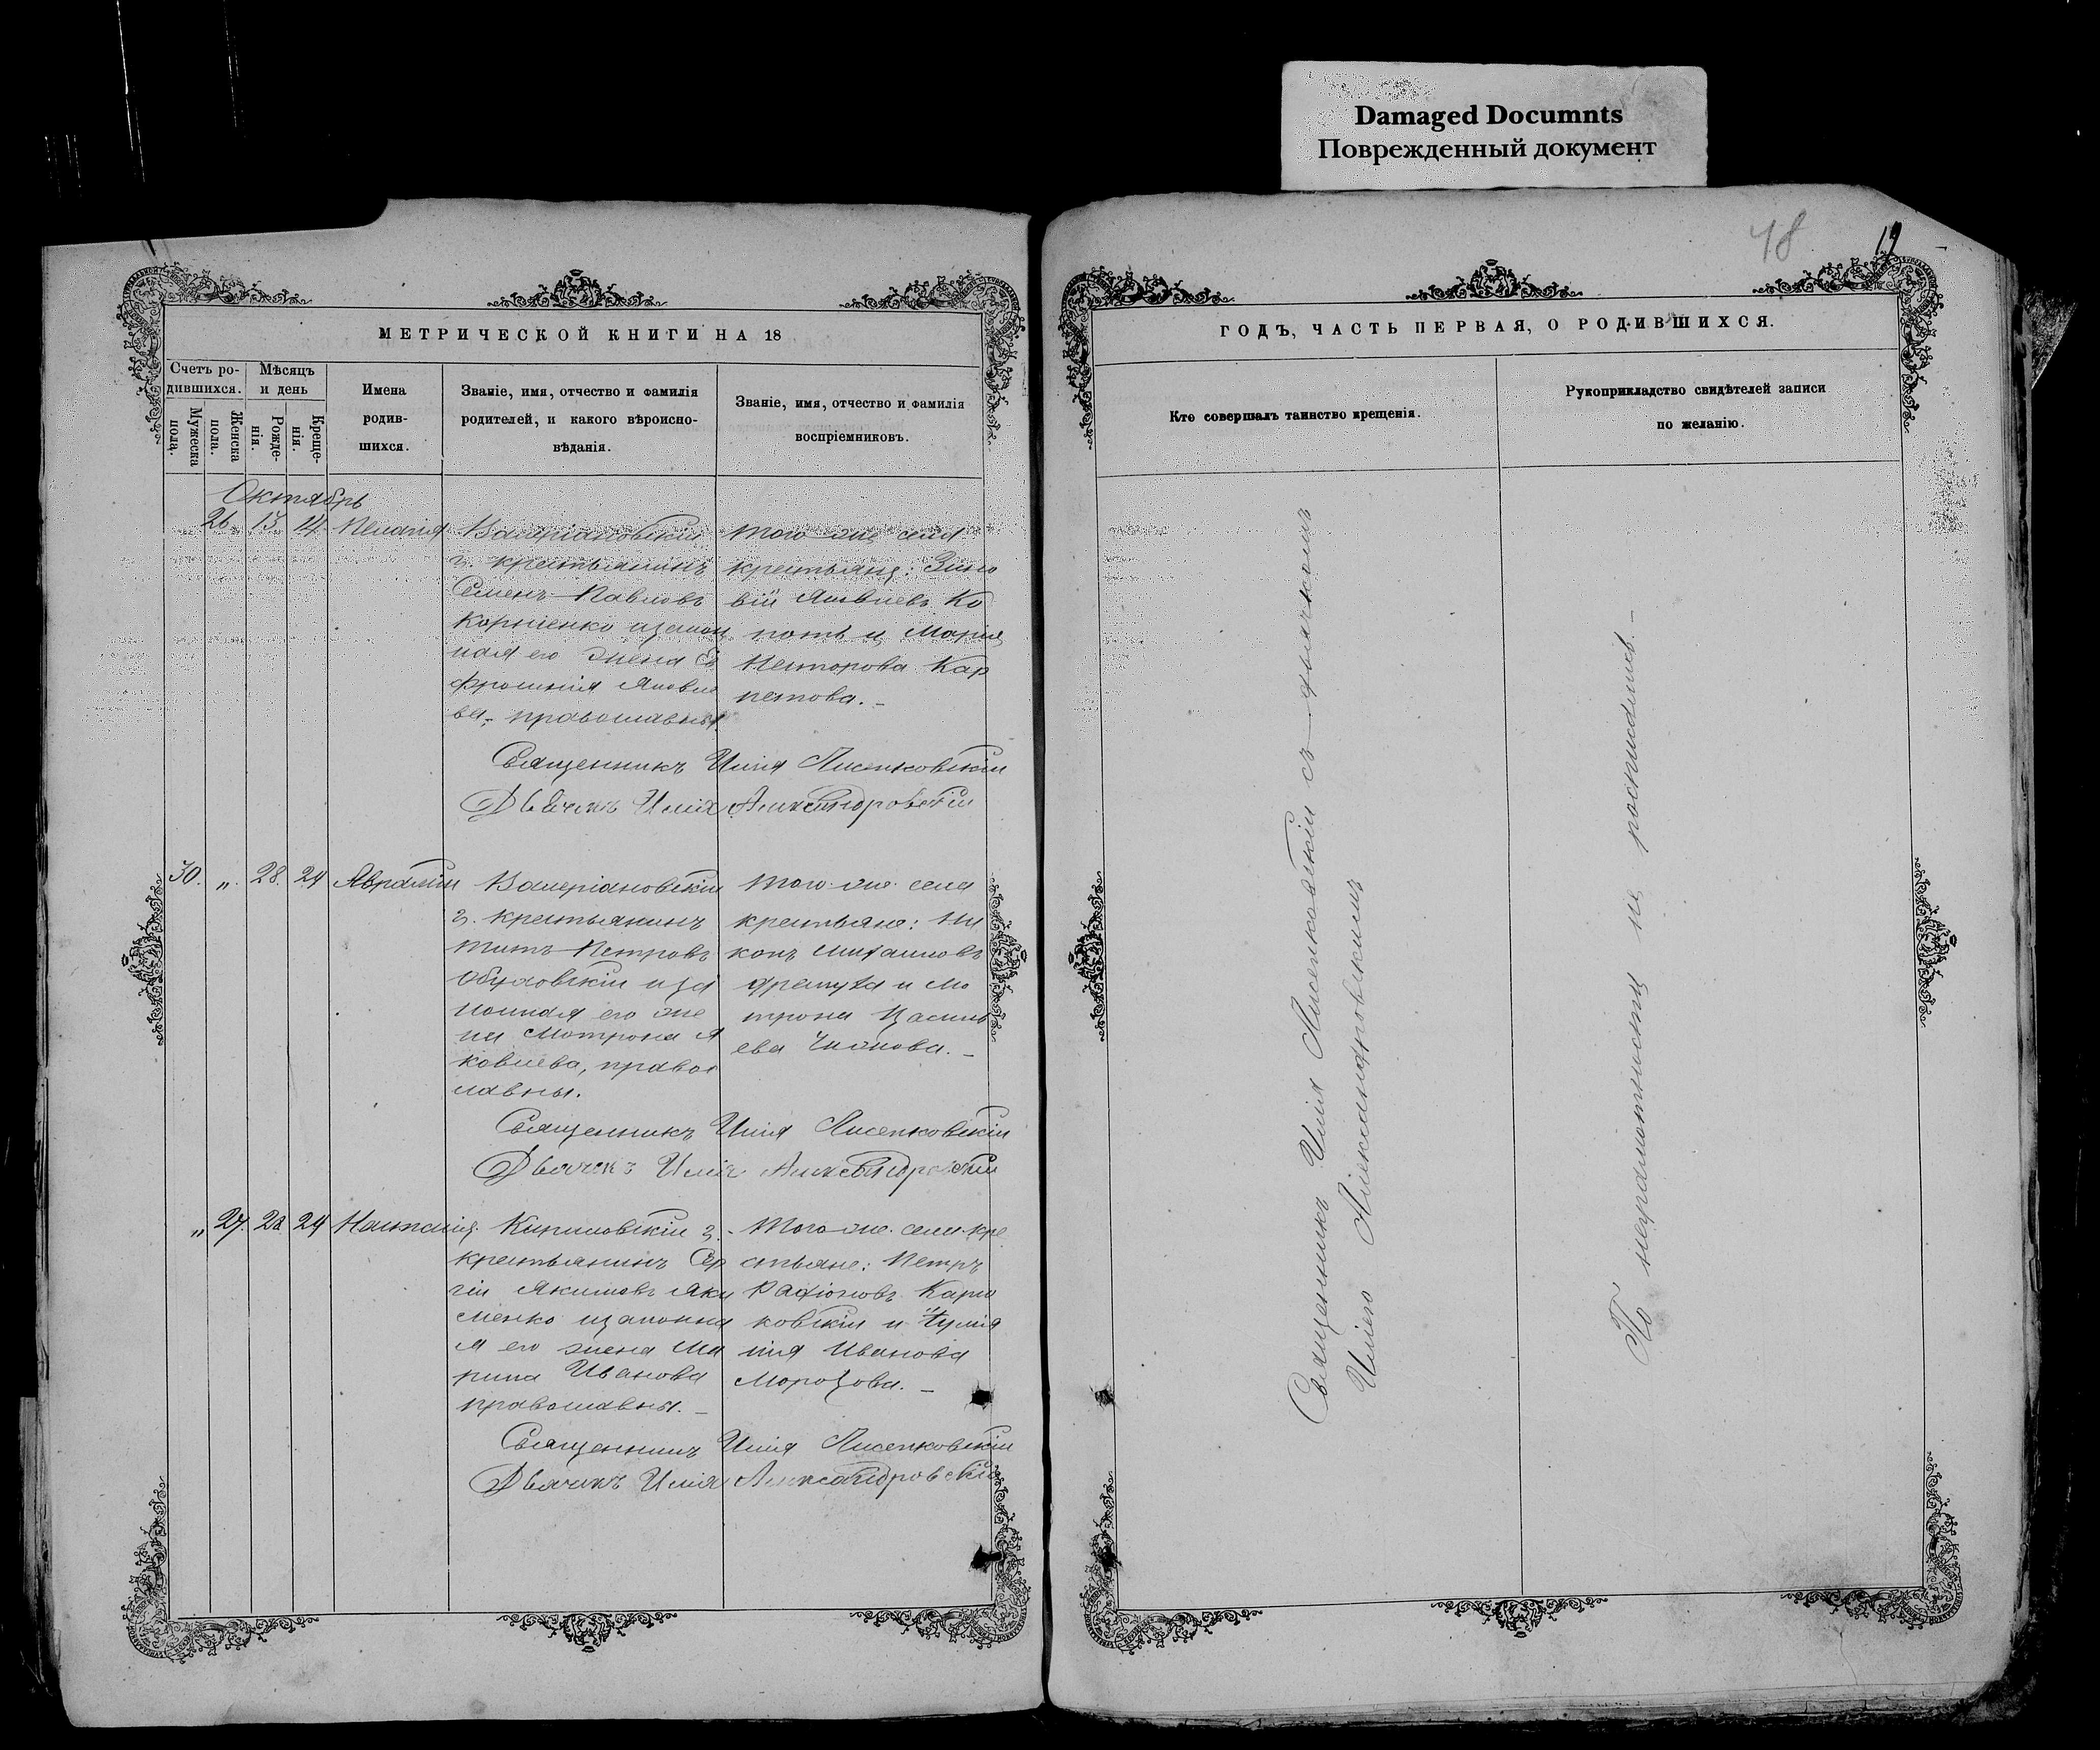 Damaged Documnts
Поврежденный документ
48
19
МЕТРИЧЕСКОЙ КНИГИ НА 18
Счетъ ро-
дившихся.
Мужеска
пола.
Женска
пола.
Мѣсяцъ
и день
Рожде-
нія.
Креще-
нія.
Имена
родив-
шихся.
Званіе, имя, отчество и фамилія
родителей, и какого вѣроиспо-
вѣданія.
Званіе, имя, отчество и фамилія
воспріемниковъ.
Октябрь
26. 13. 14. Пелагія
Валеріановскій
з. крестьянинъ
Семенъ Павловъ
Корніенко изакон
ная его жена Е
фросинія Яковле
ва, православны.
того-же села
крестьяне: Зино
вій Яковлевъ Ко
потъ и Марія
Несторова Кар
петова.
Священникъ Илія Лисенковскій
Дьячекъ Илія Александровскій
30. „ 28. 29 Авраамій
Валеріановскій
з. крестьянинъ
Титъ Петровъ
Обуховскій иза
конная его же
на Мотрона Я
ковлева, правос
лавны.
того-же села
крестьяне: Ни
конъ Михаиловъ
и Мо
трона Василь
ева
Священникъ Илія Лисенковскій
Дьячекъ Илія Александровскій
„ 27. 28 29 Настасія.
Кириловскій з.
крестьянинъ Сер
гій Якимовъ Яки
менко изаконна
я его жена Ма
рина Иванова
православны.
Того-же села кре
стьяне: Петръ
Радіоновъ Карпо
ковскій и Іулія
нія Иванова
Морозова.
Священникъ Илія Лисенковскій
Дьячекъ Илія Александровскій
ГОДЪ, ЧАСТЬ ПЕРВАЯ, О РОДИВШИХСЯ.
Кто совершалъ таинство крещенія.
Рукоприкладство свидѣтелей записи
по желанію.
Священникъ Илія Лисенковскій съ дьячкомъ
Иліею Александровскимъ
По неграмотности не росписались.